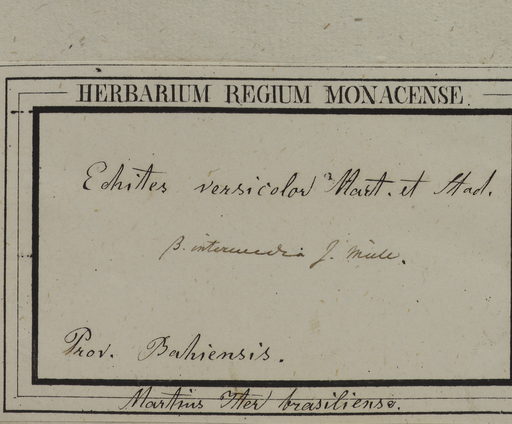 HERBARIUM REGIUM MONACENSE
Echites versicolor Mart. et Stad.
β. intermedia J. Müll.
Prov. Bahiensis.
Martius Iter brasiliense.